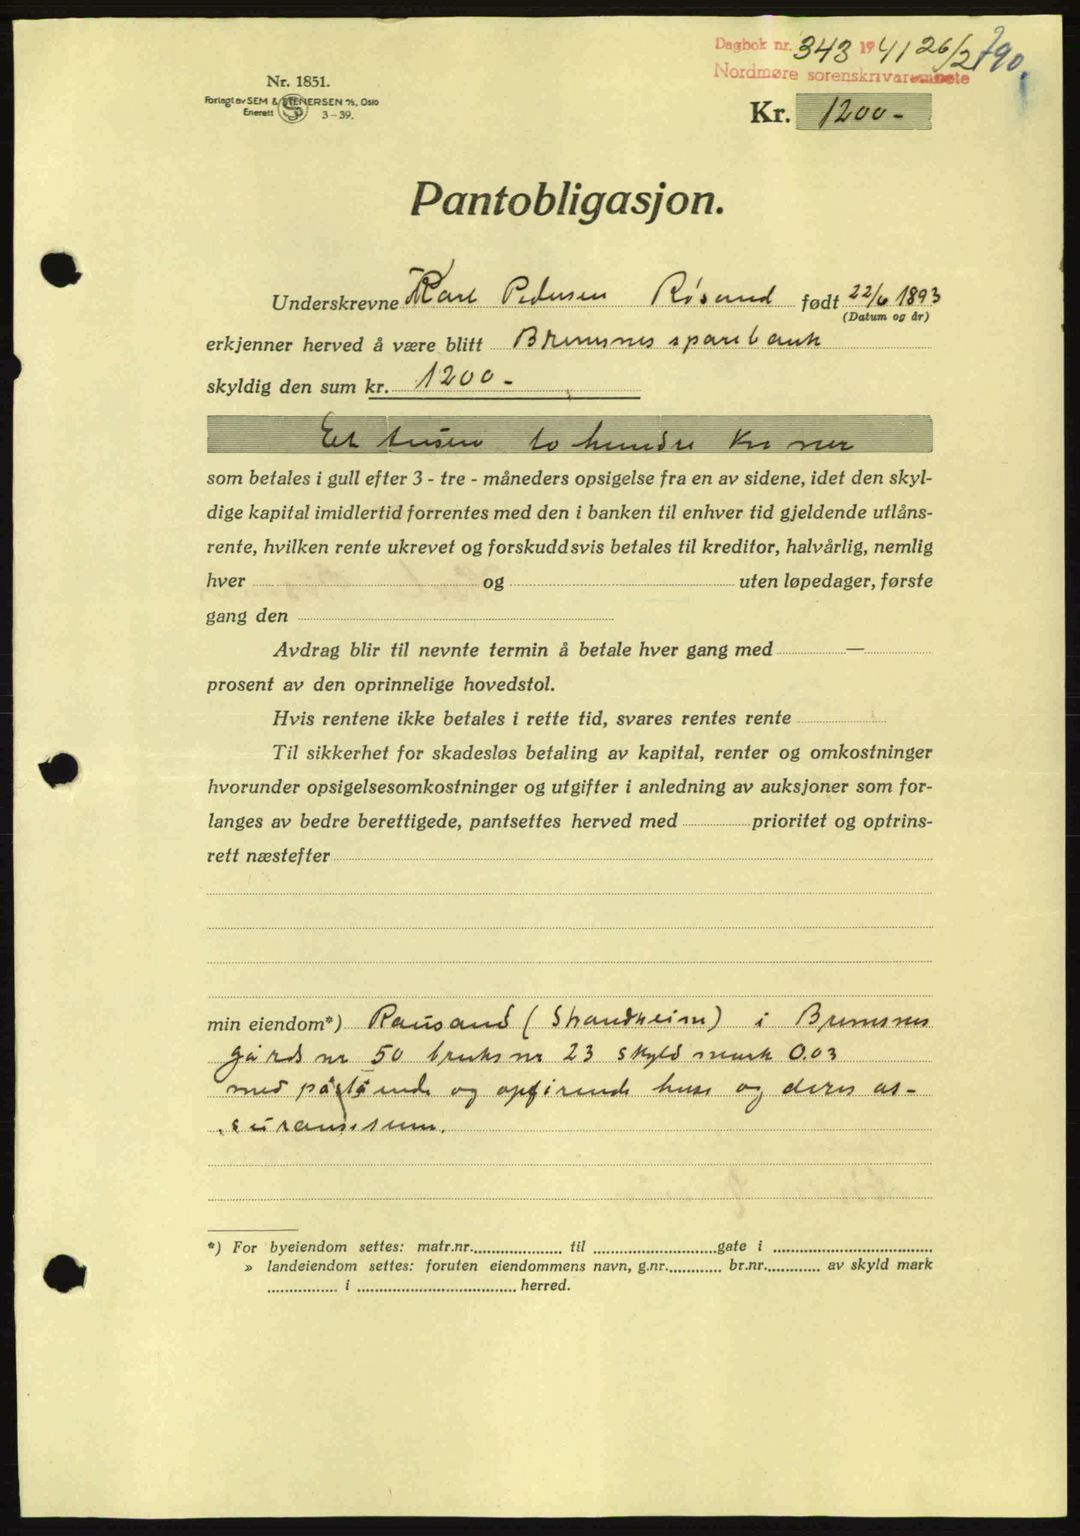 Dagbok nr. 343 1941 26/2 790.
Nordmøre sorenskriverembete
Nr. 1851.
Forlagt av SEM & STENERSEN A/S, Oslo
Enerett 3-39.
Kr. 1200-
Pantobligasjon.
Underskrevne Karl Pedersen Røsand født 22/6 1893
(Datum og år)
erkjenner herved å være blitt Bremsnes sparebank
skyldig den sum kr. 1200-
Et tusen to hundre kroner
som betales i gull efter 3 - tre - måneders opsigelse fra en av sidene, idet den skyl-
dige kapital imidlertid forrentes med den i banken til enhver tid gjeldende utlåns-
rente, hvilken rente ukrevet og forskuddsvis betales til kreditor, halvårlig, nemlig
hver og uten løpedager, første
gang den
Avdrag blir til nevnte termin å betale hver gang med —
prosent av den oprinnelige hovedstol.
Hvis rentene ikke betales i rette tid, svares rentes rente
Til sikkerhet for skadesløs betaling av kapital, renter og omkostninger
hvorunder opsigelsesomkostninger og utgifter i anledning av auksjoner som for-
langes av bedre berettigede, pantsettes herved med prioritet og optrins-
rett næstefter
min eiendom*) Rausand (Strandheim) i Bremsnes
gårds nr 50 bruks nr 23 skyld mark 0.03
med påstående og opførende huse og deres as-
suransesum.
*) For byeiendom settes: matr.nr. til gate i
» landeiendom settes: foruten eiendommens navn, g.nr. br.nr. av skyld mark
i herred.